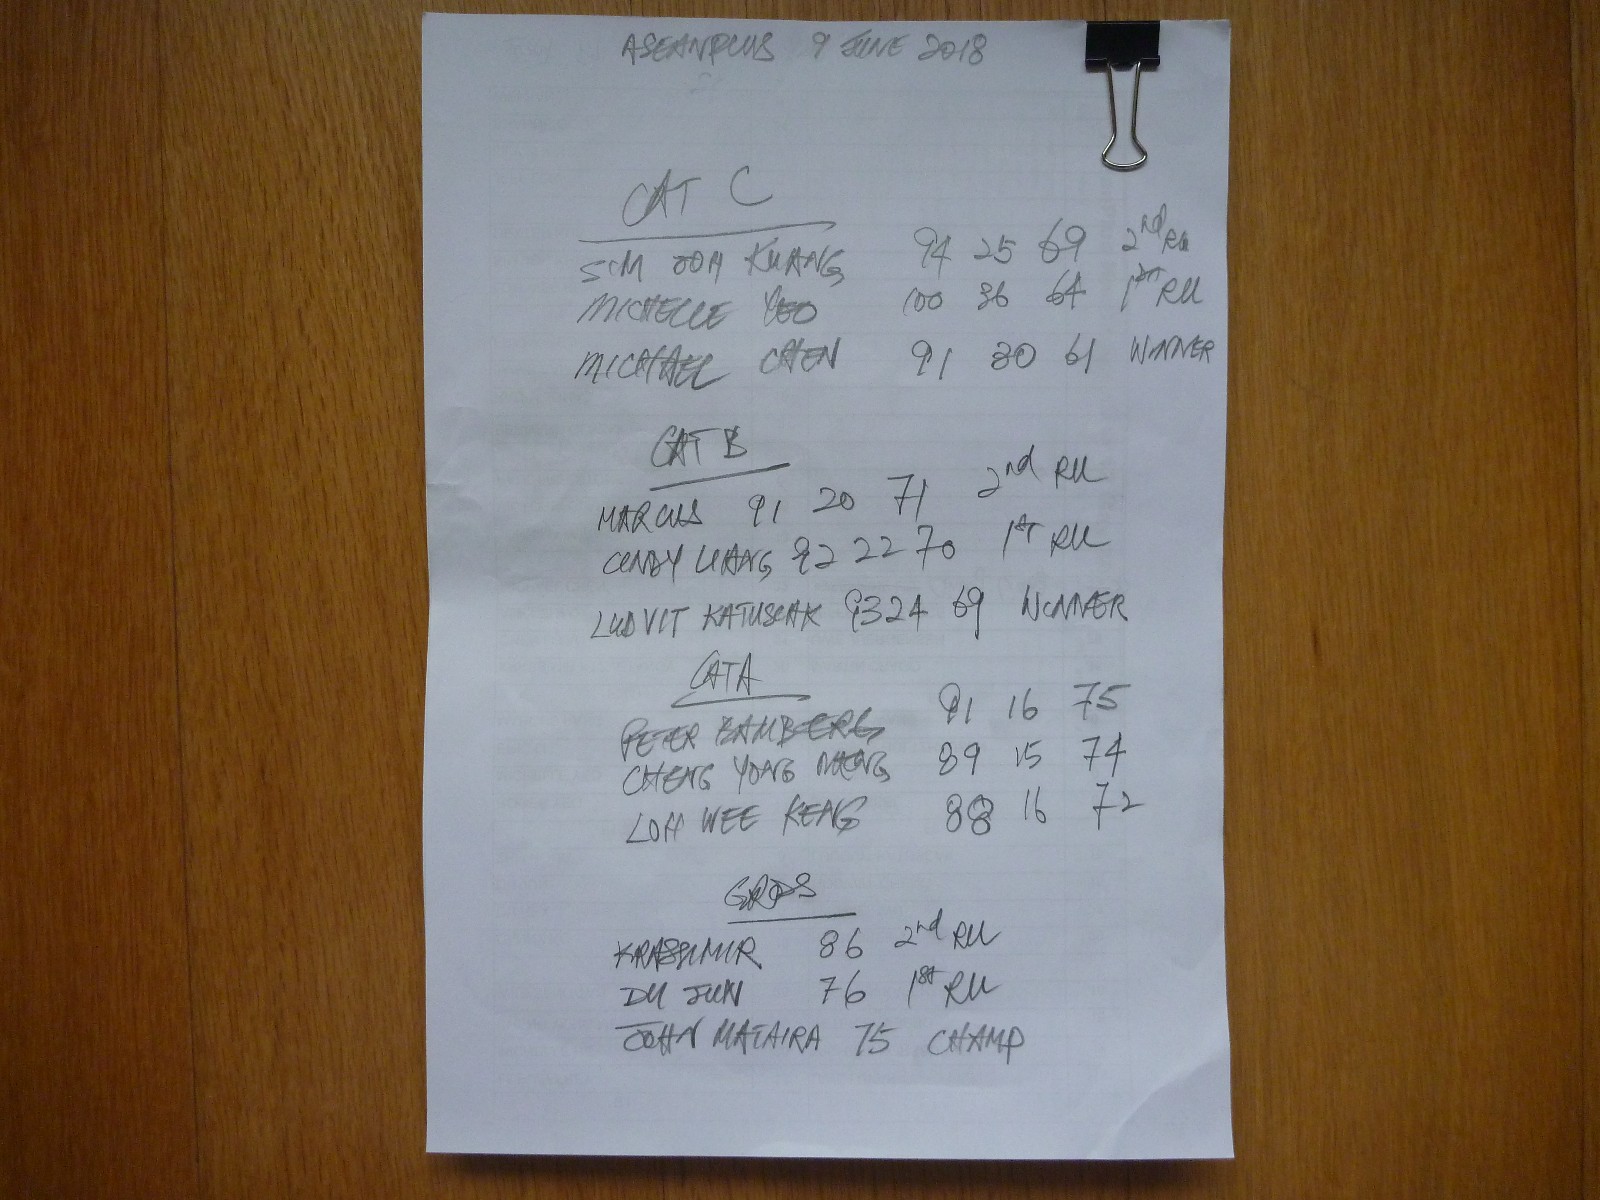 ASEANPLUS 9 JUNE 2018
CAT C
SIM JOO KUANG 94 25 69 2nd RU
MICHELLE YEO 100 36 64 1st RU
MICHAEL CHEN 91 30 61 WINNER
CAT B
MARCUS 91 20 71 2nd RU
CINDY LIANG 92 22 70 1st RU
LUDVIT KATUSCAK 93 24 69 WINNER
CAT A
PETER BAMBERG 91 16 75
CHENG YONG 89 15 74
LOH WEE KENG 88 16 72
KRASSIMIR 86 2nd RU
DU JUN 76 1st RU
JOHN MATAIRA 75 CHAMP